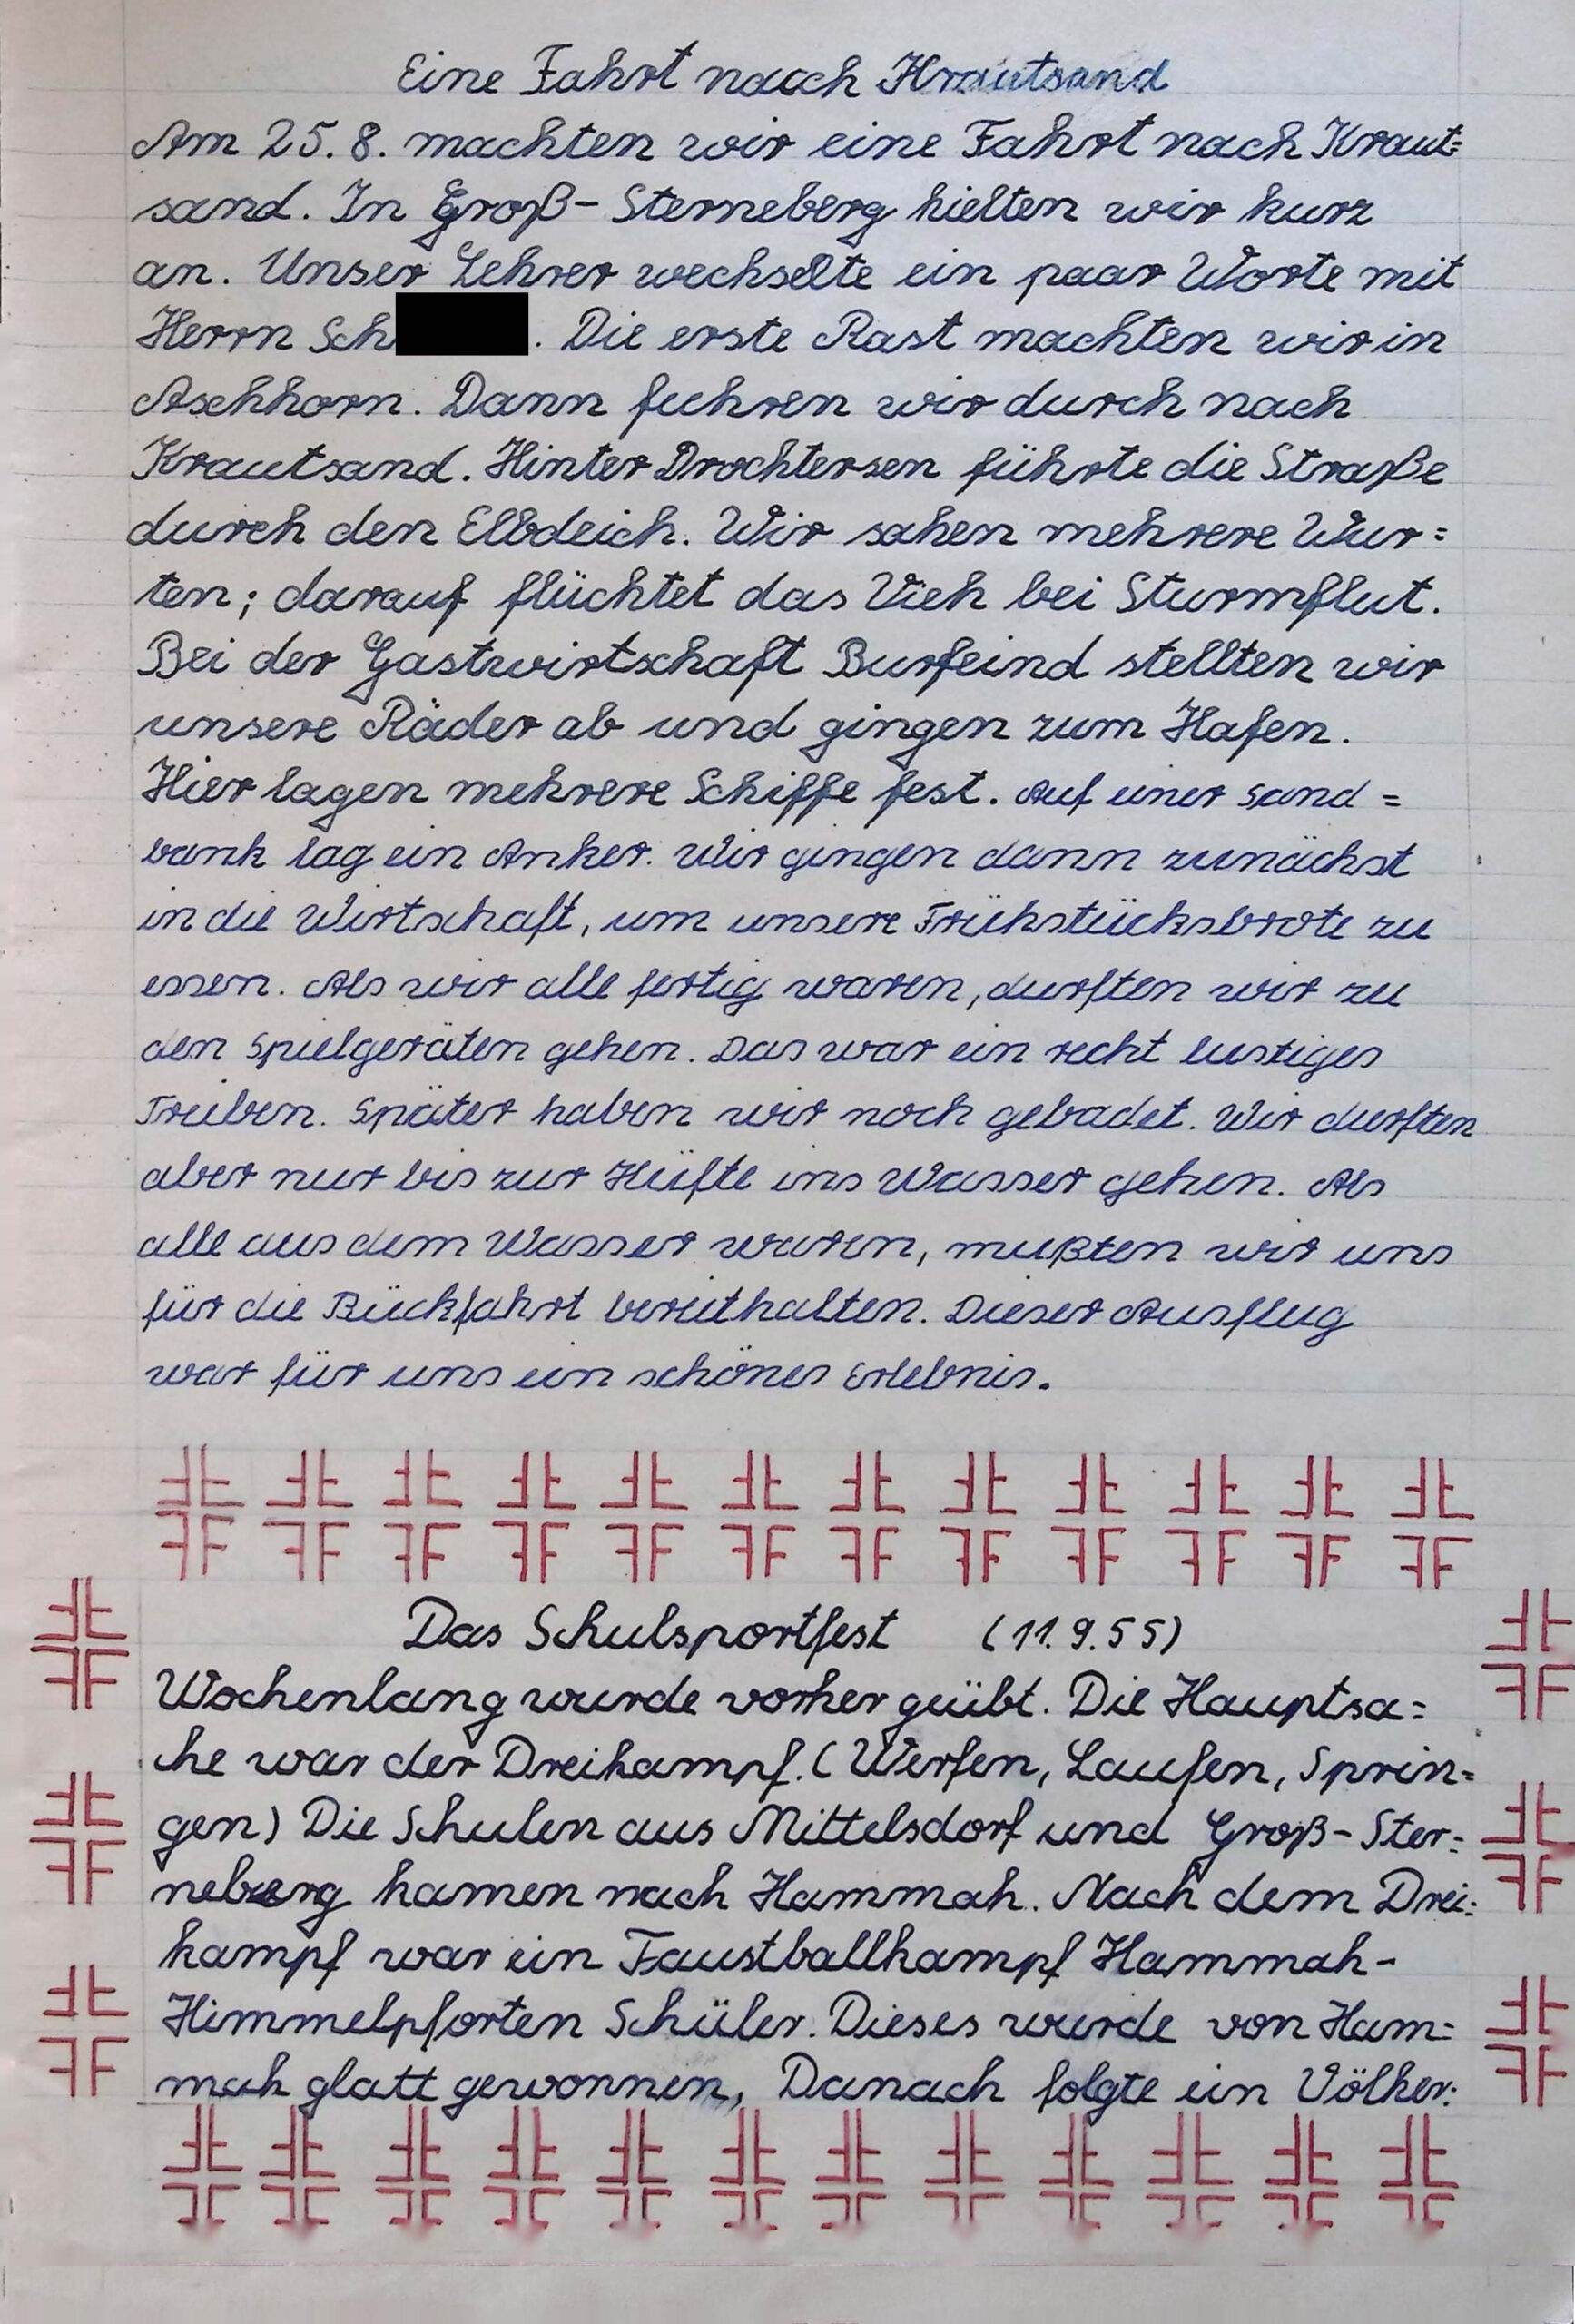 Eine Fahrt nach Krautsand
Am 25. 8. machten wir eine Fahrt nach Kraut=
sand. In Groß-Sterneberg hielten wir kurz
an. Unser Lehrer wechselte ein paar Worte mit
Herrn Sch . Die erste Rast machten wir in
Aschhorn. Dann fuhren wir durch nach
Krautsand. Hinter Drochtersen führte die Straße
durch den Elbdeich. Wir sahen mehrere Wur=
ten; darauf flüchtet das Vieh bei Sturmflut.
Bei der Gastwirtschaft Burfeind stellten wir
unsere Räder ab und gingen zum Hafen.
Hier lagen mehrere Schiffe fest. Auf einer Sand=
bank lag ein Anker. Wir gingen dann zunächst
in die Wirtschaft, um unsere Frühstücksbrote zu
essen. Als wir alle fertig waren, durften wir zu
den Spielgeräten gehen. Das war ein recht lustiges
Treiben. Später haben wir noch gebadet. Wir durften
aber nur bis zur Hüfte ins Wasser gehen. Als
alle aus dem Wasser waren, mußten wir uns
für die Rückfahrt bereithalten. Dieser Ausflug
war für uns ein schönes Erlebnis.
Das Schulsportfest (11.9.55)
Wochenlang wurde vorher geübt. Die Hauptsa=
che war der Dreikampf. (Werfen, Laufen, Sprin=
gen) Die Schulen aus Mittelsdorf und Groß-Ster=
neberg kamen nach Hammah. Nach dem Drei=
kampf war ein Faustballkampf Hammah-
Himmelpforten Schüler. Dieses wurde von Ham=
mah glatt gewonnen, Danach folgte ein Völker=